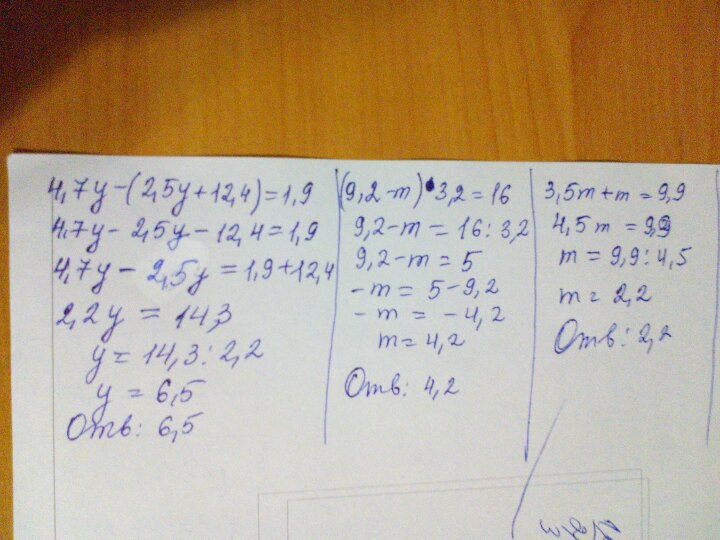 4,7y-(2,5y+12,4)=1,9
4,7y-2,5y-12,4=1,9
4,7y-2,5y=1,9+12,4
2,2y=14,3
y=14,3:2,2
y=6,5
Отв: 6,5
(9,2-m)•3,2=16
9,2-m=16:3,2
9,2-m=5
-m=5-9,2
-m=-4,2
m=4,2
Отв: 4,2
3,5m+m=9,9
4,5m=9,9
m=9,9:4,5
m=2,2
Отв: 2,2